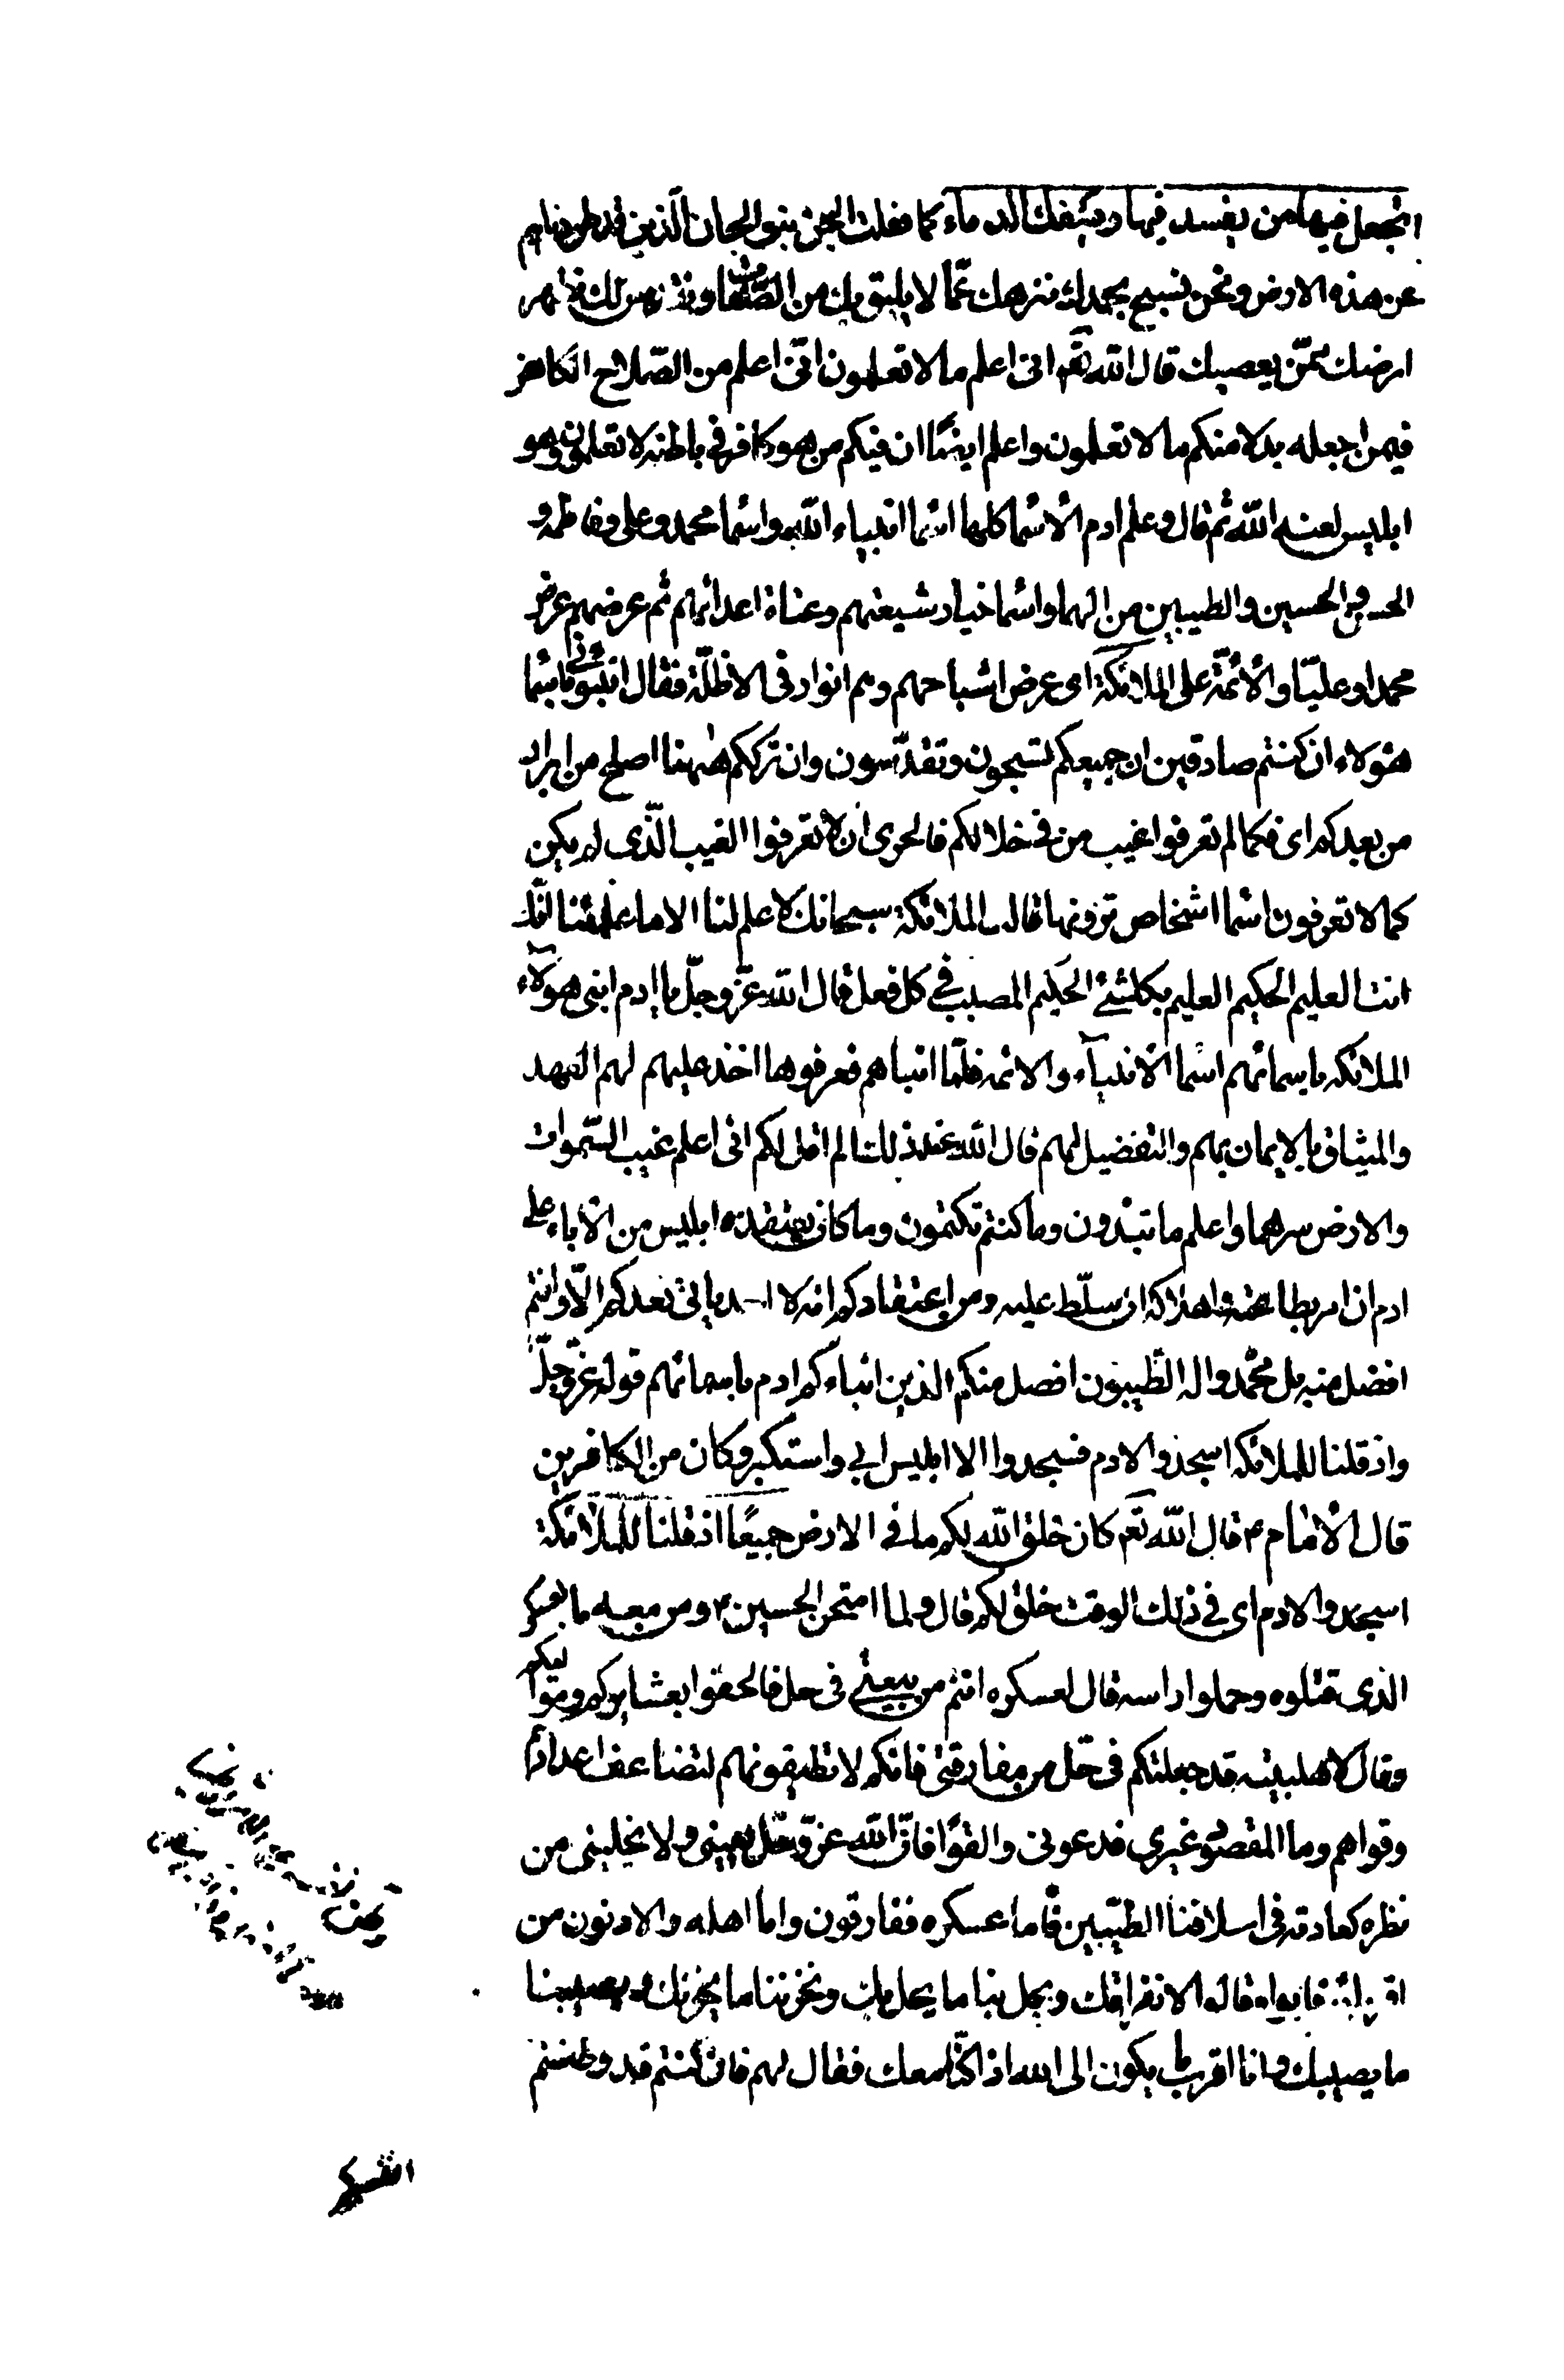 اتجعل فيها من يفسد فيها ويسفك الدماء كما فعلت الجن بنو الجان الذين قد طردناهم
عن هذه الارض ونحن نسبح بحمدك ننزهك عمّا لا يليق بك من الصّفات ونقدس لك نطهر
ارضك ممّن يعصيك قال الله تعٓ انى اعلم ما لا تعلمون انّى اعلم من الصّلاح الكائن
فيمن اجعله بدلا منكم ما لا تعلمون واعلم ايضًا ان فيكم من هو كافر في باطنه لا تعلمون وهو
ابليس لعنه الله ثم قال وعلم ادم الأسما كلها اسما انبياء الله واسما محمد وعلى وفاطمه و
الحسن والحسين والطيبين من الهما واسما خيار شيعتهم وعتاة اعدائهم ثم عرضهم عرض
محمدا وعليّا والأئمّة على الملائكة اى عرض اشباحهم وهم انوار فى الاظلّة فقال انبئونى باسما
هؤلاء ان كنتم صادقين ان جميعكم تسبحون وتقدّسون وان ترككم هٰهنا اصلح من ايراد
من بعدكم اى فكما لم تعرفوا غيب من في خلالكم فالحرى ان لا تعرفوا الغيب الّذى لم يكن
كما لا تعرفون اسما اشخاص ترونها قالت الملائكة سبحانك لا علم لنا الا ما علمتنا انّك
انت العليم الحكيم العليم بكلشئ الحكيم المصيب في كل فعل قال الله عزّ وجلّ يا ادم انبئ هؤلآء
الملائكه باسمائهم اسما الانبيآء والائمه فلمّا انباهم فعرفوها اخذ عليهم لهم العهد
والميثاق بالايمان بهم والتفضيل لهم قال الله عند ذلك الم اقل لكم انى اعلم غيب السّموات
والارض سرهما واعلم ما تبدون وما كنتم تكتمون وما كان يعتقده ابليس من الاباء على
ادم ان امر بطاعته واهلاكه ان سلّط عليه ومن اعتقادكم انه لا احد ياتى بعدكم الّا وانتم
افضل منه بل محمّد واله الطّيبون افضل منكم الذين انباءكم ادم باسمائهم قوله عزّ وجلّ
واذ قلنا للملائكه اسجدوا لادم فسجدوا الا ابليس ابي واستكبر وكان من الكافرين
قال الأمام ع قال الله تعٓ كان خلق الله لكم ما فى الارض جميعًا اذ قلنا للملائكة
اسجدوا لادم اى في ذلك الوقت خلق لكم قال ولما امتحن الحسين ع ومن معه بالعسكر
الذى قتلوه وحملوا راسه قال لعسكره انتم من بيعتى فى حل فالحقوا بعشايركم ومواليكم
وقال لاهلبيته قد جعلتكم فى حّل من مفارقتى فانكم لا تطيقونهم لتضاعف اعدادهم
وقواهم وما المقصود غيرى فدعونى والقوم فانّ الله عزّ وجل يعيننى ولا يخلينى من
نظره كعادته فى اسلافنا الطيّبين فاما عسكره ففارقون واما اهله والادنون من
اقربائه فابوا وقالوا لا نفارقك ويحل بنا ما يحل بك ويحزننا ما يحزنك ويصيبنا
ما يصيبك وانا اقرب ما يكون الى الله اذا كنّا معك فقال لهم فان كنتم قد وطنتم
انفسكم